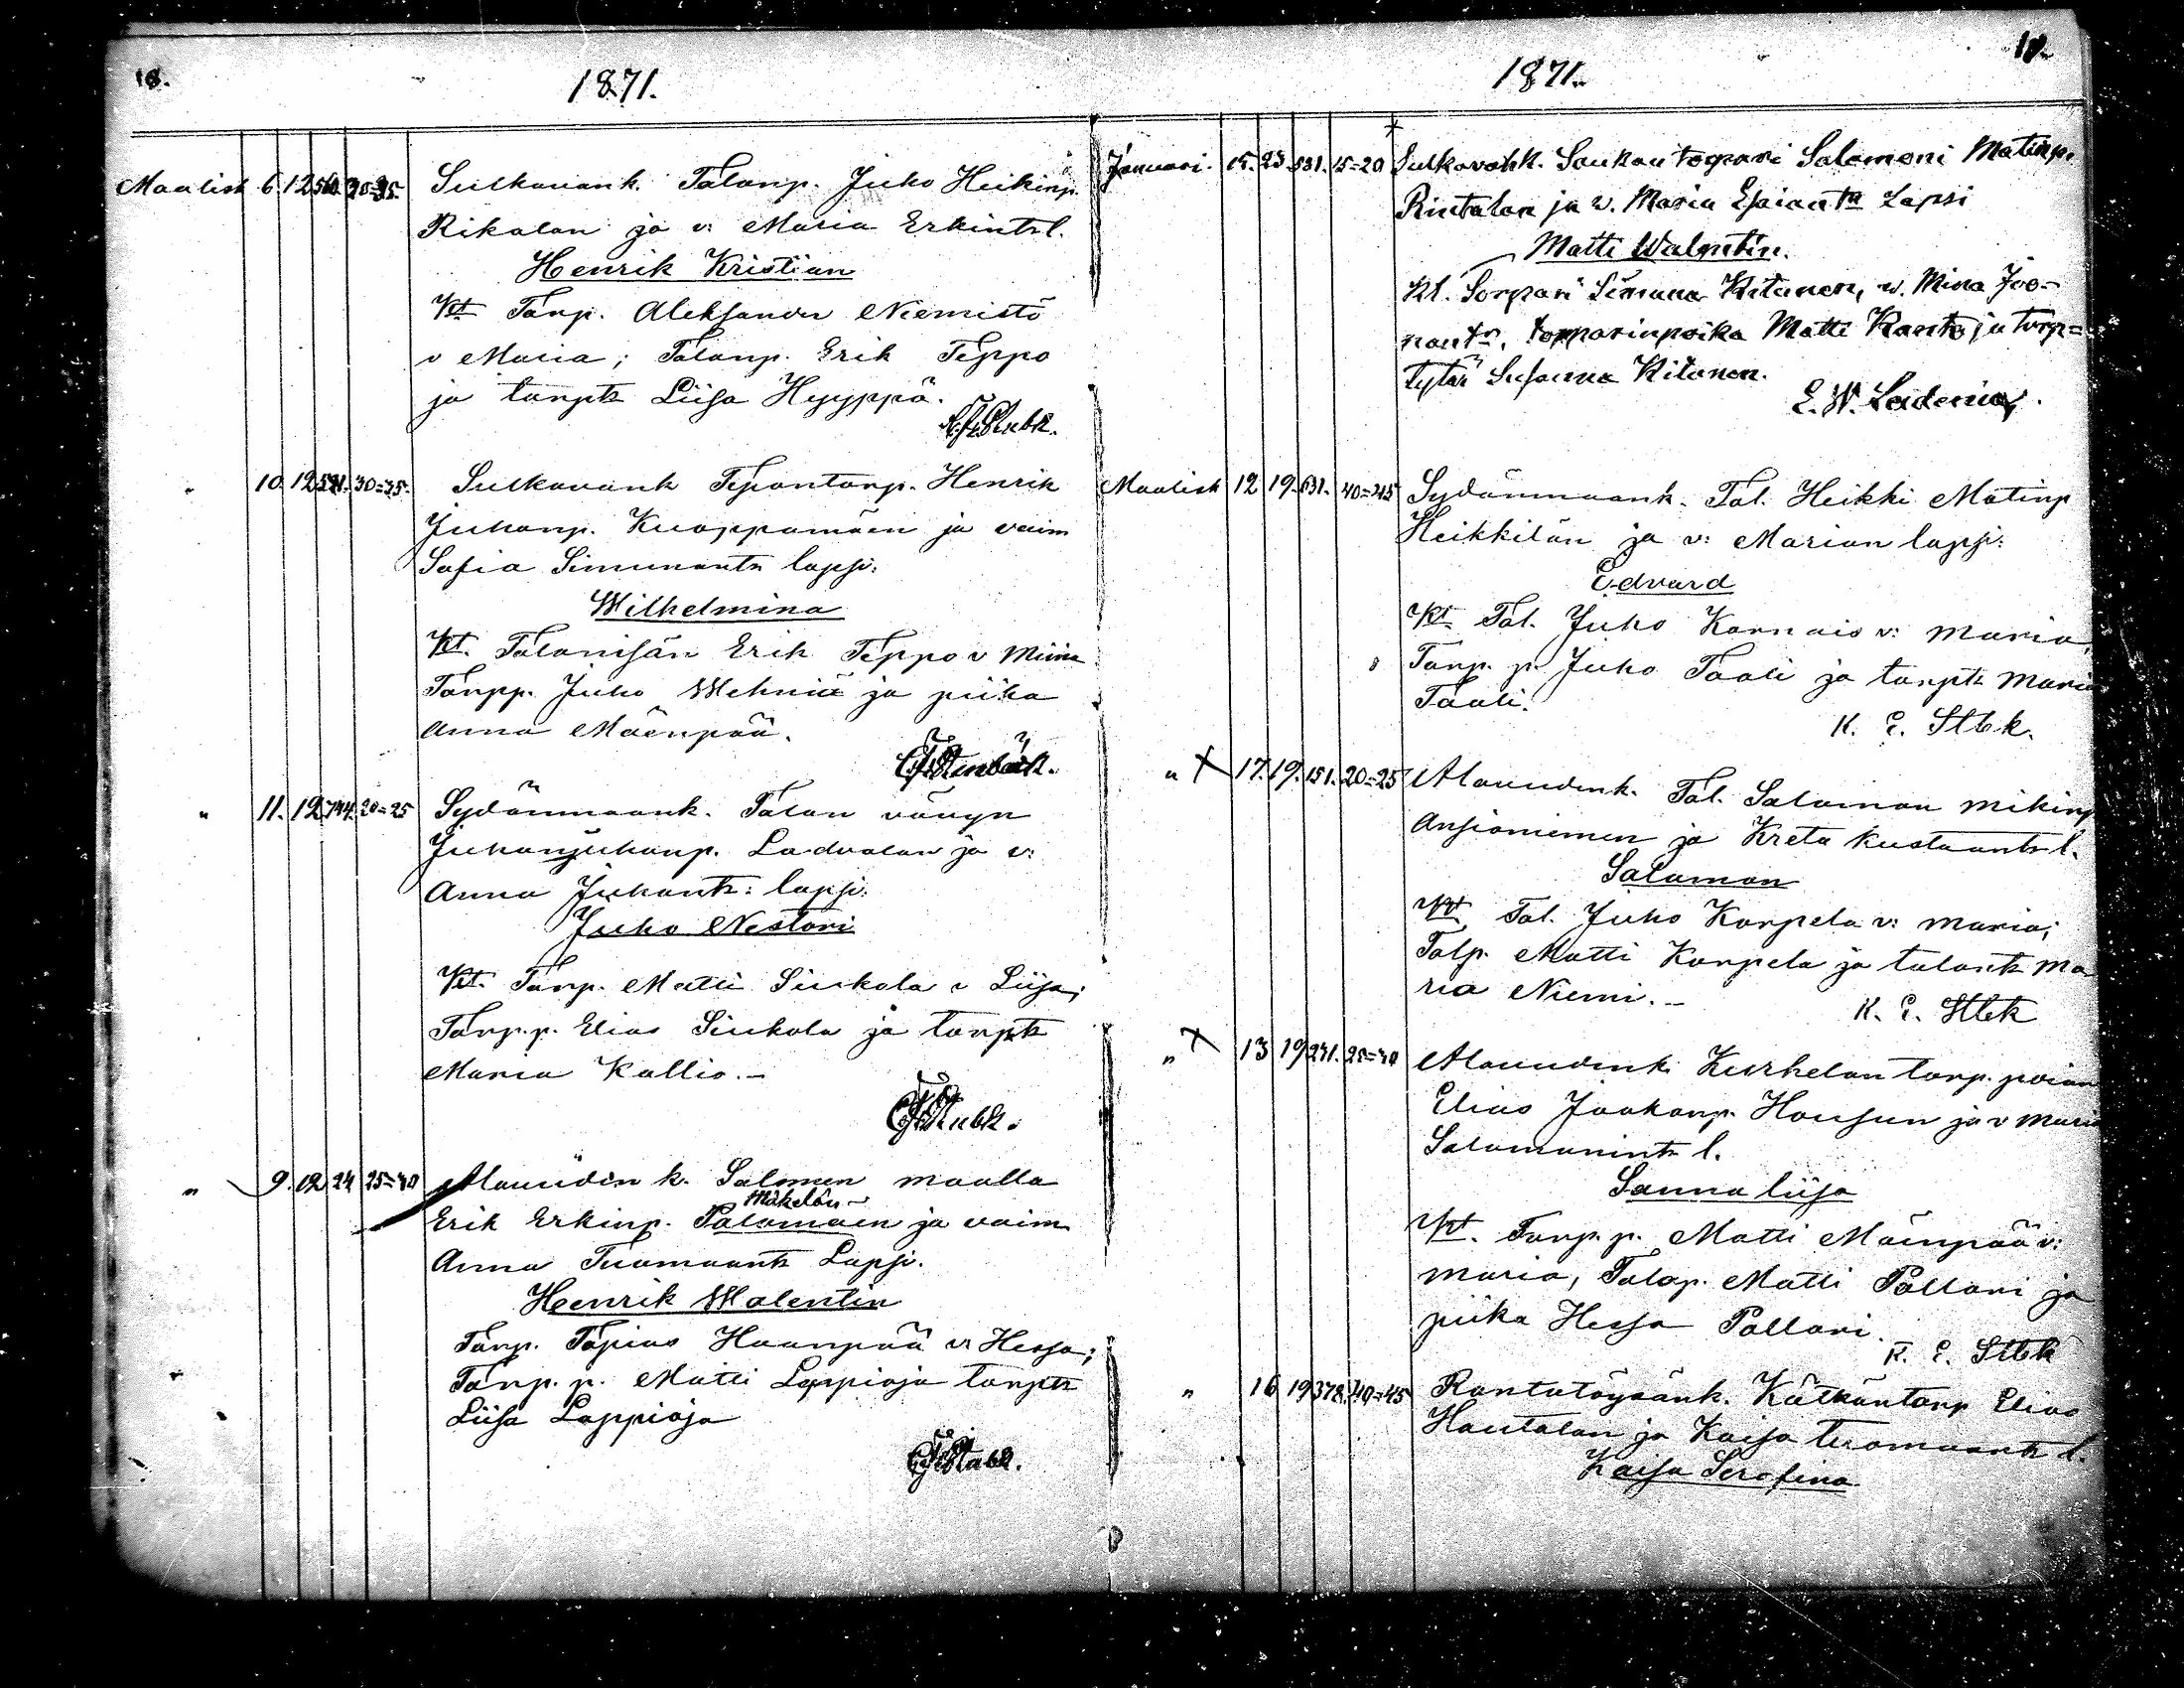 18.
1871.
Maalisk 6. 12 560. 30=35. Sulkavank. Talonp. Juho Heikinp.
Rikalan ja v: Maria Erkints l.
Henrik Kristian
Kt. Torp. Aleksander Niemistö
v Maria; Talonp. Erik Teppo
ja torpts Liisa Hyyppä.
" 10. 12 591. 30=35. Sulkavank Tepontorp. Henrik
Juhonp. Kuoppamäen ja vaim
Sofia Simunants lapsi:
Wilhelmina
Kt. Talonisän Erik Teppo v Miina
Torpp. Juho ja piika
Anna Mäenpää.
" 11. 12 744. 20=25 Sydänmaank. Talon vävyn
Juhanjuhanp. Ladvalan ja v:
Anna Juhants: lapsi:
Juho Nestori
Kt. Torp. Matti Siukola v Liisa;
Torp.p. Elias Siukola ja torpts
Maria Kallio.-
" 9. 12 24 25=30 Alauudin k. Salomen maalla
Mäkelän
Erik Erkinp. Palomaen ja vaim
Anna Tuomaants Lapsi.
Henrik Walentin
Torp. Topias Haanpää v Hessa;
Torp. p. Matti Lappioja torpts
Liisa Lappioja
1871.
Januari. 15. 23. 531. 15=20 Sulkavank. Saukontorpari Salomoni Matinp.
Rintalan ja w. Maria Esaiantr Lapsi
Matti Walentin.
Kt. Torpari Simuna Kitunen, w. Mina Joo-
nantr, torparinpoika Matti Ranta ja torp=
tytär Susanna Kitunen.
E. W.
Maalisk 12 19. 631. 40=45 Sydänmaank. Tal. Heikki Matinp
Heikkilän ja v: Marian lapsi:
Edvard
Kt. Tal. Juho v: Maria,
Torp. p. Juho Taali ja torpts Maria
Taali.
K. E. Stbk.
" X 17. 19. 151. 20=25 Alauudenk. Tal. Salomon Mikinp
Ansioniemen ja Kreta Kustaants l.
Salomon
Kt. Tal. Juho Korpela v: Maria;
Talp. Matti Korpela ja talonts Ma
ria Niemi.-
K. E. Stbk
" X 13 19 231. 25=30 Alauudenk. Kurhelan torp. poian
Elias Jaakonp. ja v Maria
Salomonints l.
Sanna Liisa
Kt. Torp. p. Matti Mäenpää v:
Maria, Talop. Matti Pollari ja
piika Hessa Pollari.
K. E. Stbk
" 16 19 378. 40=45 Rantatöysänk. Kätkäntorp Elias
Hautalan ja Kaisa Tuomaants l.
Kaisa Serafina